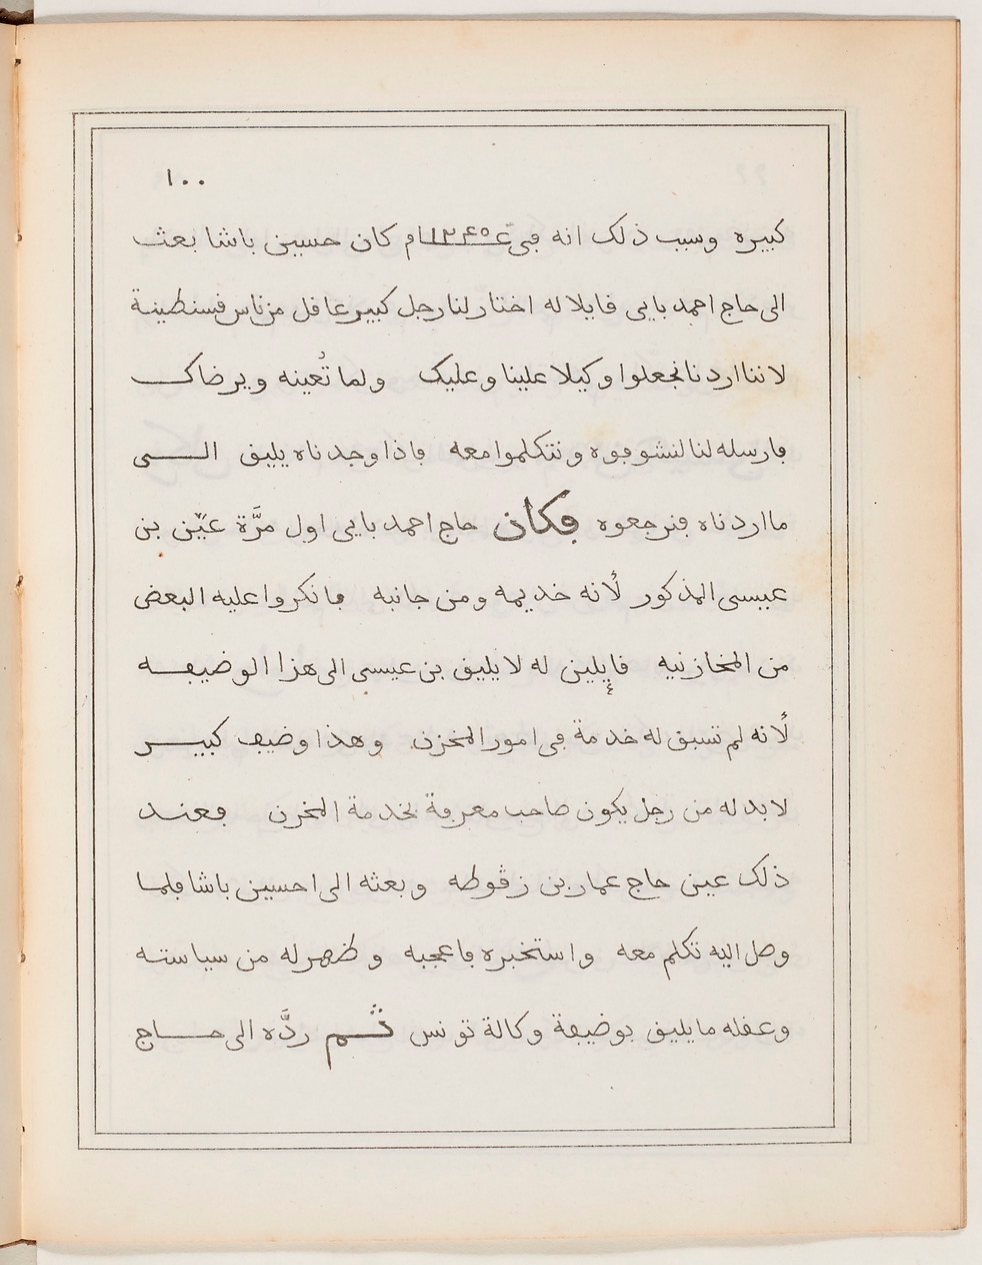 ١٠٠
كبيره وسبب ذلك انه في عـ١٢٤٥ـام كان حسين باشا بعث
الى حاج احمد بايي قايلا له اختار لنا رجل كبير عاقل من ناس قسنطينة
لاننا اردنا نجعلوا وكيلا علينا وعليك ولما تُعينه ويرضاك
فارسله لنا لنشوفوه ونتكلموا معه فاذا وجدناه يليق الـــى
ما اردناه فنرجعوه فكان حاج احمد بايي اول مرَّة عيَّن بن
عيسى المذكور لأنه خديمه ومن جانبه فانكروا عليه البعض
من المخازنيه قايلين له لا يليق بن عيسى الى هزا الوضيفــه
لأنه لم تسبق له خدمة في امور المخزن وهذا وضيف كبيـــر
لابد له من رجل يكون صاحب معرفة بخدمة المخزن فعنــد
ذلك عين حاج عمار بن زڤوطه وبعثه الى احسين باشا فلمـا
وصل اليه تكلم معه واستخبره فاعجبه وظهر له من سياستـه
وعقله ما يليق بوضيفة وكالة تونس ثـــم ردَّه الى حـــاج